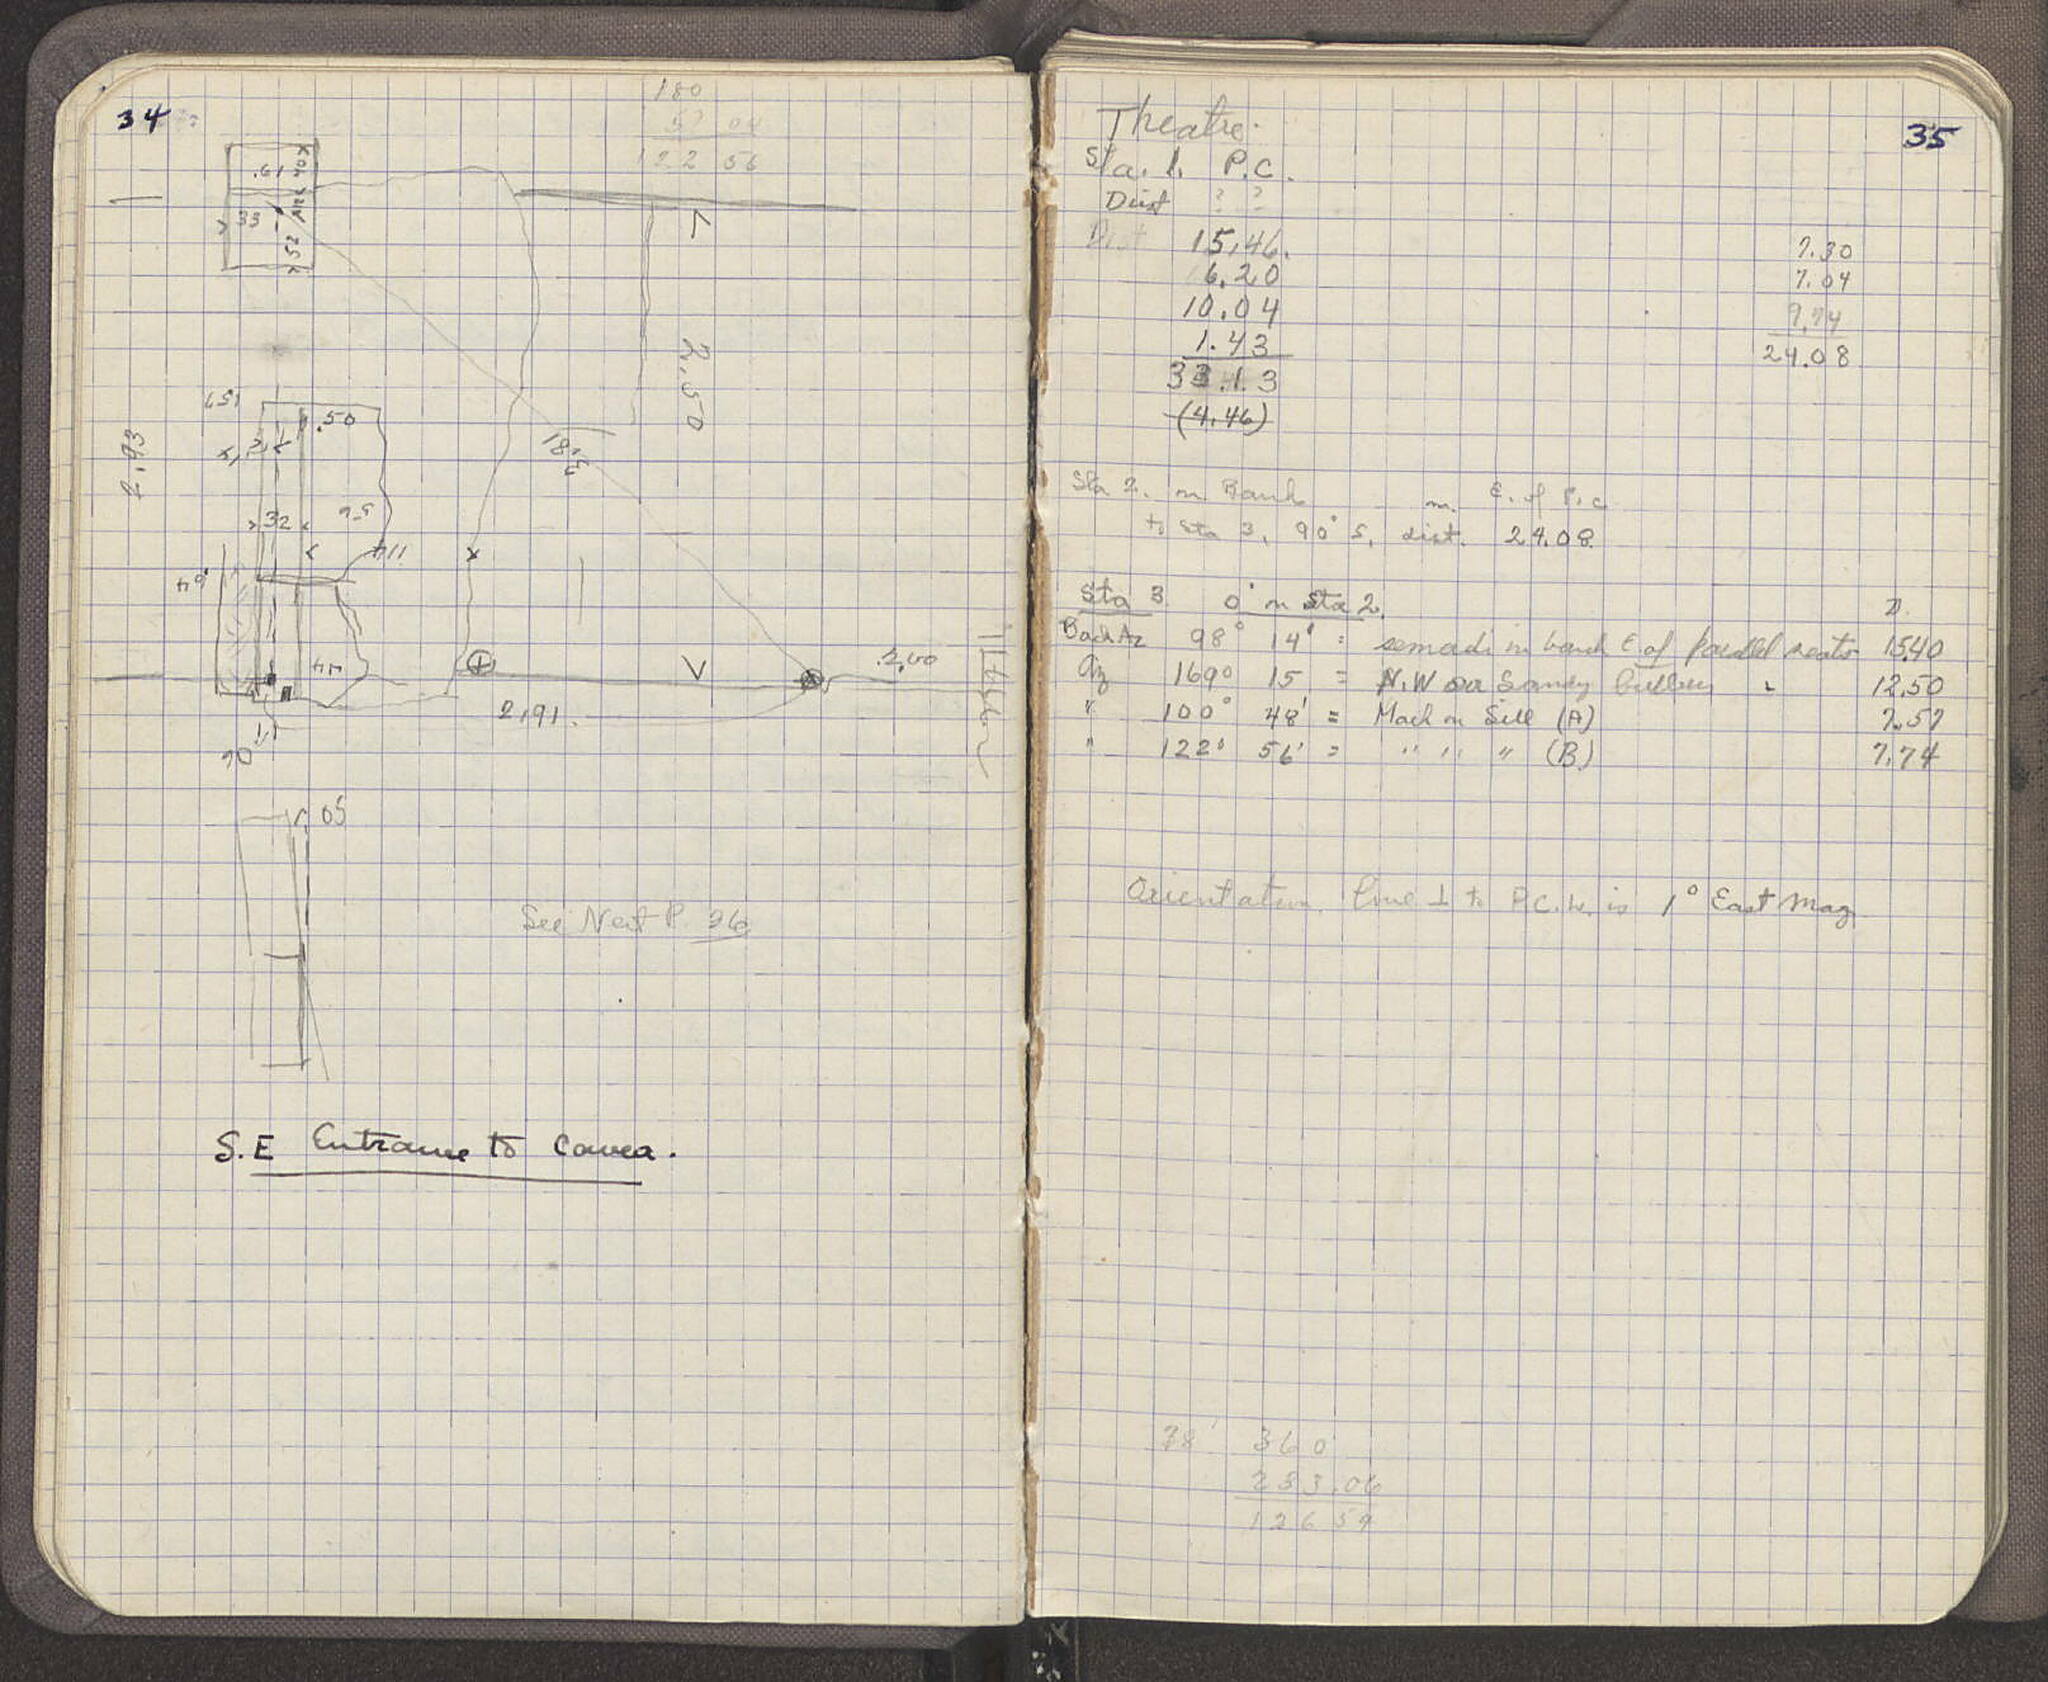 34
180
57 04
122 56
.61
.40
33
.52
2.50
.157
.50
2.93
.32
.95
114
.64
.44
2.60
2.91.
.05
See Next P. 36
S.E Entrance to Cavea.
35
Theatre.
Sta. 1. P.C.
Dist ? ?
Dist 15.46.
6.20
10.04
1.43
33.13
(4.46)
7.30
7.04
9.74
24.08
Sta 2. on Bank m. E. of P.C
to Sta 3, 90° S, dist. 24.08
Sta 3. 0° on Sta 2.
Back Az 98° 14' = in bank E. of parallel seats 15.40
Az 169° 15 = N.W 12.50
" 100° 48' = Mark on Sill (A) 7.57
" 122° 56' = " " " (B) 7.74
Orientation. Line ⊥ to P.C. is 1° East Mag
360
233.06
126 54